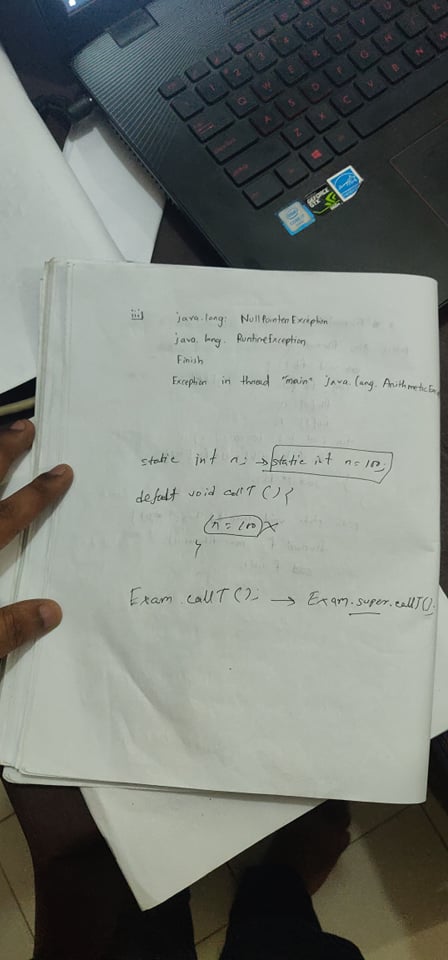 iii)
java.lang: NullPointerException
java.lang. RuntimeException
Finish
Exception in thread "main" java.lang. ArithmeticExce
static int n; → static int n=100;
default void callT () {
n = 100 ×
}
Exam.callT(); → Exam.super.callT();